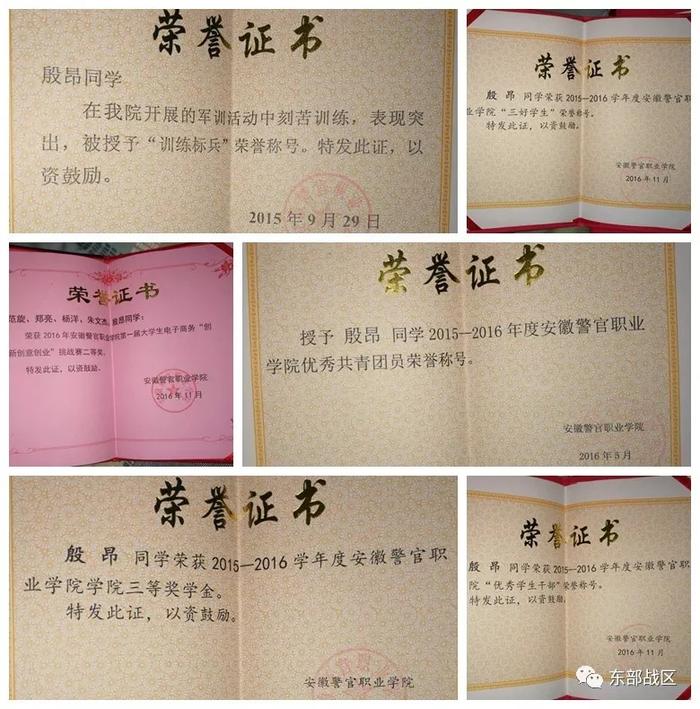 荣誉证书
殷昂同学
在我院开展的军训活动中刻苦训练，表现突
出，被授予“训练标兵”荣誉称号。特发此证，以
资鼓励。
2015年9月29日
荣誉证书
殷 昂 同学荣获2015—2016学年度安徽警官职
业学院“三好学生”荣誉称号。
特发此证，以资鼓励。
安徽警官职业学院
2016年11月
荣誉证书
范旋、郑亮、杨洋、朱文杰、殷昂同学：
荣获2016年安徽警官职业学院第一届大学生电子商务“创
新创意创业”挑战赛二等奖。
特发此证，以资鼓励。
安徽警官职业学院
2016年11月
荣誉证书
授予 殷昂 同学2015—2016年度安徽警官职业
学院优秀共青团员荣誉称号。
安徽警官职业学院
2016年5月
荣誉证书
殷 昂 同学荣获2015—2016学年度安徽警官职
业学院学院三等奖学金。
特发此证，以资鼓励。
安徽警官职业学院
荣誉证书
殷 昂 同学荣获2015—2016学年度安徽警官职
院“优秀学生干部”荣誉称号。
特发此证，以资鼓励。
安徽警官职业学院
2016年11月
东部战区